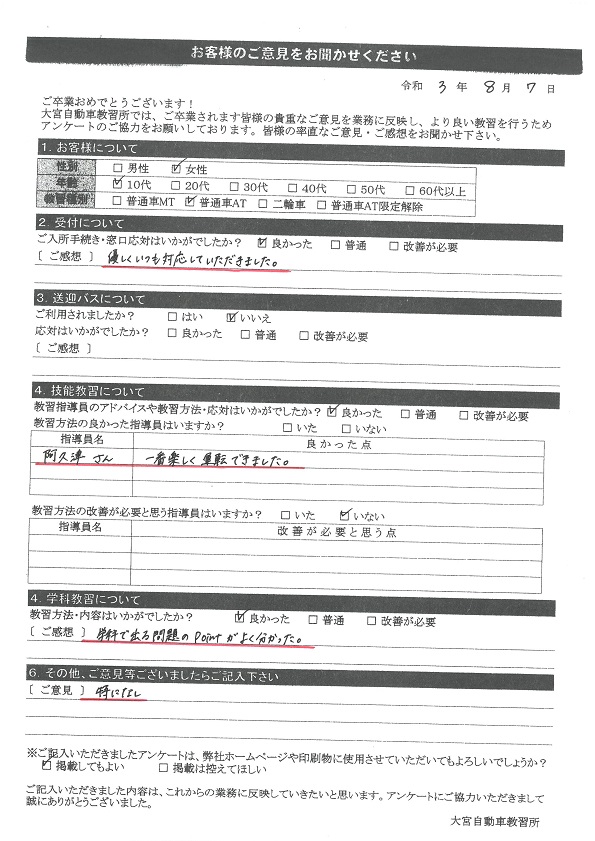 お客様のご意見をお聞かせください
令和 3 年 8 月 7 日
ご卒業おめでとうございます！
大宮自動車教習所では、ご卒業されます皆様の貴重なご意見を業務に反映し、より良い教習を行うため
アンケートのご協力をお願いしております。皆様の率直なご意見・ご感想をお聞かせ下さい。
1. お客様について
性別 □ 男性 ☑ 女性
年齢 ☑ 10代 □ 20代 □ 30代 □ 40代 □ 50代 □ 60代以上
教習種別 □ 普通車MT ☑ 普通車AT □ 二輪車 □ 普通車AT限定解除
2. 受付について
ご入所手続き・窓口応対はいかがでしたか？ ☑ 良かった □ 普通 □ 改善が必要
〔 ご感想 〕 優しくいつも対応していただきました。
3. 送迎バスについて
ご利用されましたか？ □ はい ☑ いいえ
応対はいかがでしたか？ □ 良かった □ 普通 □ 改善が必要
〔 ご感想 〕
4. 技能教習について
教習指導員のアドバイスや教習方法・応対はいかがでしたか？ ☑ 良かった □ 普通 □ 改善が必要
教習方法の良かった指導員はいますか？ □ いた □ いない
指導員名 良かった点
阿久津 さん 一番楽しく運転できました。
教習方法の改善が必要と思う指導員はいますか？ □ いた ☑ いない
指導員名 改善が必要と思う点
4. 学科教習について
教習方法・内容はいかがでしたか？ ☑ 良かった □ 普通 □ 改善が必要
〔 ご感想 〕 学科で出る問題のPointがよく分かった。
6. その他、ご意見等ございましたらご記入下さい
〔 ご意見 〕 特になし
※ご記入いただきましたアンケートは、弊社ホームページや印刷物に使用させていただいてもよろしいでしょうか？
☑ 掲載してもよい □ 掲載は控えてほしい
ご記入いただきました内容は、これからの業務に反映していきたいと思います。アンケートにご協力いただきまして
誠にありがとうございました。
大宮自動車教習所